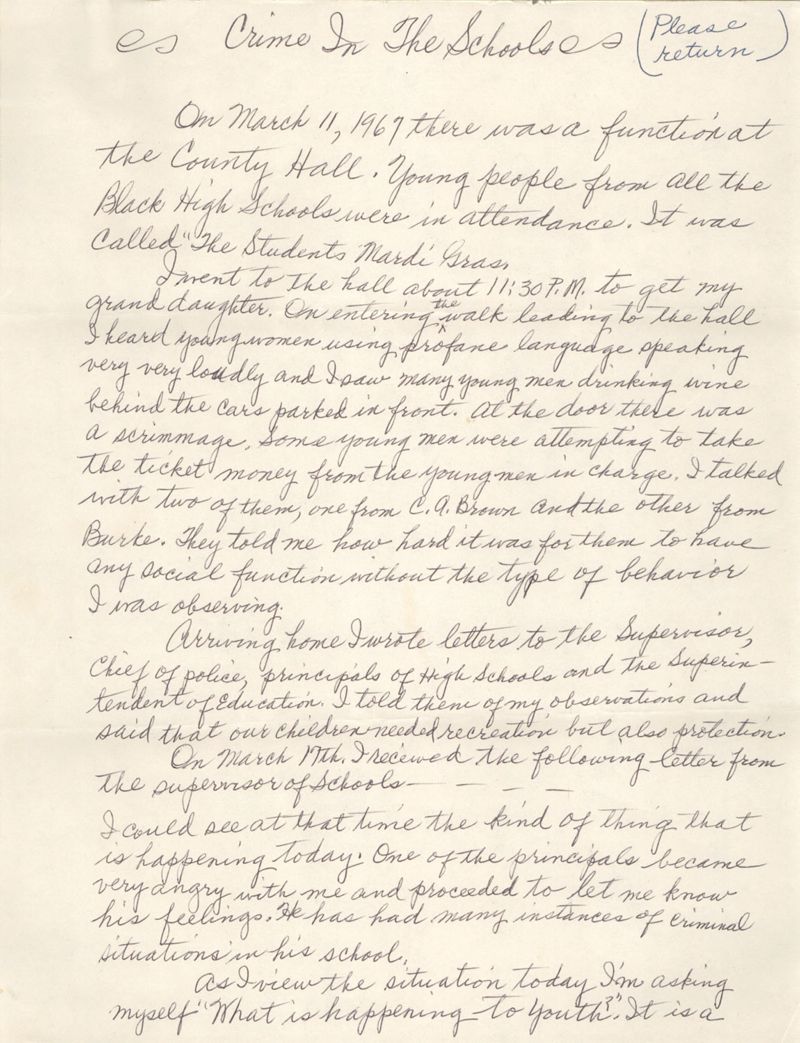 Crime In The Schools
(Please
return)
On March 11, 1967 there was a function at
the County Hall. Young people from all the
Black High Schools were in attendance. It was
Called "The Students Mardi Gras.
I went to the hall about 11:30 P.M. to get my
grand daughter. On entering the walk leading to the hall
I heard young women using profane language speaking
very very loudly and I saw many young men drinking wine
behind the cars parked in front. At the door there was
a scrimmage. Some young men were attempting to take
the ticket money from the young men in charge. I talked
with two of them, one from C.A. Brown and the other from
Burke. They told me how hard it was for them to have
any social function without the type of behavior
I was observing.
Arriving home I wrote letters to the Supervisor,
Chief of police, principals of High Schools and the Superin-
tendent of Education. I told them of my observations and
said that our children needed recreation but also protection.
On March 17th. I received the following letter from
the supervisor of Schools- - - -
I could see at that time the kind of thing that
is happening today. One of the principals became
very angry with me and proceeded to let me know
his feelings. He has had many instances of criminal
situations in his school.
As I view the situation today I'm asking
myself "What is happening to Youth?" It is a